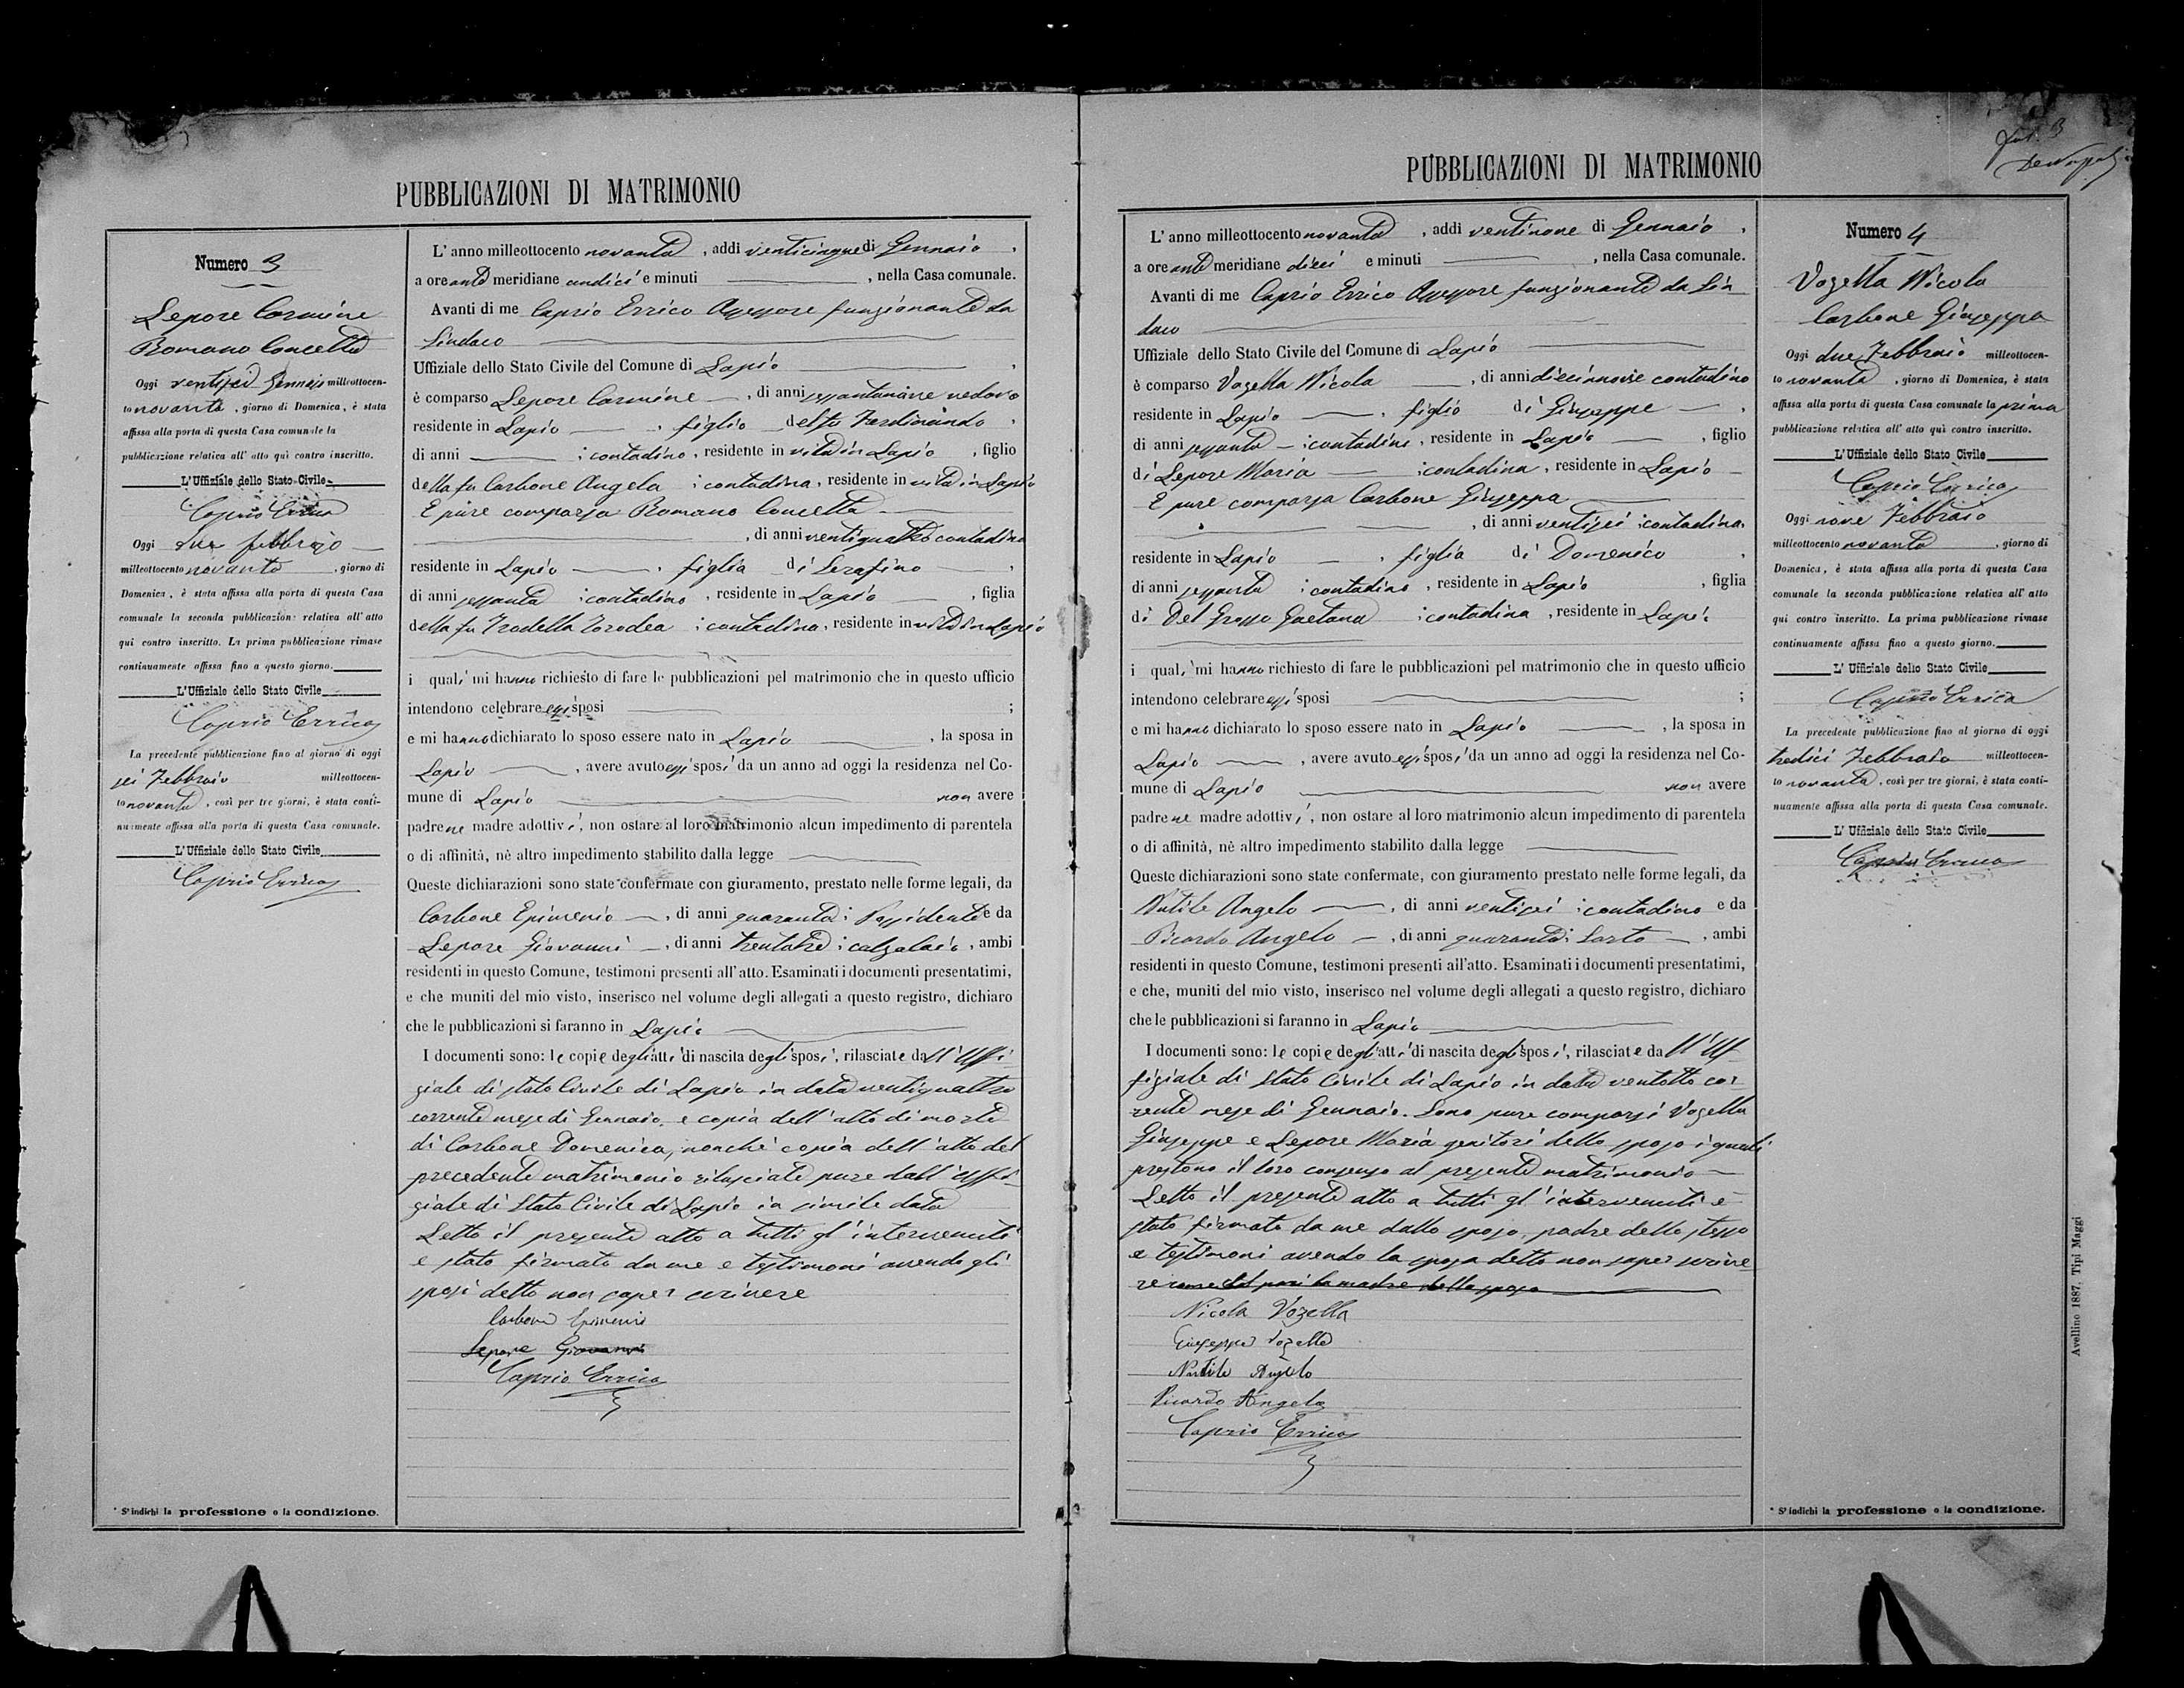 PUBBLICAZIONI DI MATRIMONIO
Numero 3
Lepore Carmine
Romano Concetta
Oggi ventisei Gennajo milleottocen-
to novanta, giorno di Domenica, è stata
affissa alla porta di questa Casa comunale la
pubblicazione relativa all' atto quì contro inscritto.
L'Uffiziale dello Stato Civile
Caprio Errico
Oggi due febbrajo
milleottocento novanta, giorno di
Domenica, è stata affissa alla porta di questa Casa
comunale la seconda pubblicazione relativa all' atto
qui contro inscritto. La prima pubblicazione rimase
continuamente affissa fino a questo giorno.
L'Uffiziale dello Stato Civile
Caprio Errico
La precedente pubblicazione fino al giorno di oggi
sei Febbraio milleottocen-
to novanta, così per tre giorni, è stata conti-
nuamente affissa alla porta di questa Casa comunale.
L'Uffiziale dello Stato Civile
Caprio Errico
* S'indichi la professione o la condizione.
L' anno milleottocento novanta, addi venticinque di Gennaio,
a ore ante meridiane undici e minuti , nella Casa comunale.
Avanti di me Caprio Errico Assessore funzionante da
Sindaco
Uffiziale dello Stato Civile del Comune di Lapio,
è comparso Lepore Carmine, di anni sessantanove vedovo
residente in Lapio, figlio del fu Ferdinando,
di anni ; contadino, residente in vita in Lapio, figlio
della fu Carbone Angela ; contadina, residente in vita in Lapio
E pure comparsa Romano Concetta
, di anni ventiquattro contadina
residente in Lapio, figlia di Serafino,
di anni sessanta ; contadino, residente in Lapio, figlia
della fu Trodella ; contadina, residente in vita in Lapio
i quali mi hanno richiesto di fare le pubblicazioni pel matrimonio che in questo ufficio
intendono celebrare essi sposi ;
e mi hanno dichiarato lo sposo essere nato in Lapio, la sposa in
Lapio, avere avuto essi sposi da un anno ad oggi la residenza nel Co-
mune di Lapio non avere
padre ne madre adottivi, non ostare al loro matrimonio alcun impedimento di parentela
o di affinità, nè altro impedimento stabilito dalla legge
Queste dichiarazioni sono state confermate con giuramento, prestato nelle forme legali, da
Carbone Epimenio, di anni quaranta ; Possidente e da
Lepore Giovanni, di anni trentatre ; calzolaio, ambi
residenti in questo Comune, testimoni presenti all'atto. Esaminati i documenti presentatimi,
e che muniti del mio visto, inserisco nel volume degli allegati a questo registro, dichiaro
che le pubblicazioni si faranno in Lapio
I documenti sono: le copie degli atti di nascita degli sposi, rilasciate dall'Uffi-
ziale di stato Civile di Lapio in data ventiquattro
corrente mese di Gennaio, e copia dell'atto di morte
di Carbone Domenica, nonchè copia dell'atto del
precedente matrimonio rilasciate pure dall'Uffi-
ziale di Stato Civile di Lapio in simile data
Letto il presente atto a tutti gl'intervenuti
è stato firmato da me e testimoni avendo gli
sposi detto non saper scrivere
Carbone Epimenio
Lepore Giovanni
Caprio Errico
PUBBLICAZIONI DI MATRIMONIO
L' anno milleottocento novanta, addi ventinove di Gennaio,
a ore ante meridiane dieci e minuti , nella Casa comunale.
Avanti di me Caprio Errico Assessore funzionante da Sin
daco
Uffiziale dello Stato Civile del Comune di Lapio
è comparso Vozella Nicola, di anni diecinnove contadino
residente in Lapio, figlio di Giuseppe,
di anni sessanta ; contadino, residente in Lapio, figlio
di Lepore Maria ; contadina, residente in Lapio
E pure comparsa Carbone Giuseppa
, di anni ventisei ; contadina
residente in Lapio, figlia di Domenico,
di anni sessanta ; contadino, residente in Lapio, figlia
di Del Grosso Gaetana ; contadina, residente in Lapio
i quali mi hanno richiesto di fare le pubblicazioni pel matrimonio che in questo ufficio
intendono celebrare essi sposi ;
e mi hanno dichiarato lo sposo essere nato in Lapio, la sposa in
Lapio, avere avuto essi sposi da un anno ad oggi la residenza nel Co-
mune di Lapio non avere
padre ne madre adottivi, non ostare al loro matrimonio alcun impedimento di parentela
o di affinità, nè altro impedimento stabilito dalla legge
Queste dichiarazioni sono state confermate, con giuramento prestato nelle forme legali, da
Nutile Angelo, di anni ventisei ; contadino e da
Picardo Angelo, di anni quaranta ; Sarto, ambi
residenti in questo Comune, testimoni presenti all'atto. Esaminati i documenti presentatimi,
e che, muniti del mio visto, inserisco nel volume degli allegati a questo registro, dichiaro
che le pubblicazioni si faranno in Lapio
I documenti sono: le copie degli atti di nascita degli sposi, rilasciate dall'Uf-
fiziale di Stato Civile di Lapio in data ventotto cor
rente mese di Gennaio. Sono pure comparsi Vozella
Giuseppe e Lepore Maria genitori dello sposo i quali
prestono il loro consenso al presente matrimonio
Letto il presente atto a tutti gl'intervenuti è
stato firmato da me dallo sposo, padre dello stesso
e testimoni avendo la sposa detto non saper scrive
re come del pari la madre dello sposo
Nicola Vozella
Giuseppe Vozella
Nutile Angelo
Picardo Angelo
Caprio Errico
Numero 4
Vozella Nicola
Carbone Giuseppa
Oggi due Febbraio milleottocen-
to novanta, giorno di Domenica, è stata
affissa alla porta di questa Casa comunale la prima
pubblicazione relativa all' atto quì contro inscritto.
L'Uffiziale dello Stato Civile
Caprio Errico
Oggi nove Febbraio
milleottocento novanta, giorno di
Domenica, è stata affissa alla porta di questa Casa
comunale la seconda pubblicazione relativa all' atto
qui contro inscritto. La prima pubblicazione rimase
continuamente affissa fino a questo giorno.
L' Uffiziale dello Stato Civile
Caprio Errico
La precedente pubblicazione fino al giorno di oggi
tredici Febbraio milleottocen-
to novanta, così per tre giorni, è stata conti-
nuamente affissa alla porta di questa Casa comunale.
L' Uffiziale dello Stato Civile
Caprio Errico
* S'indichi la professione o la condizione.
Avellino 1887. Tipi Maggi